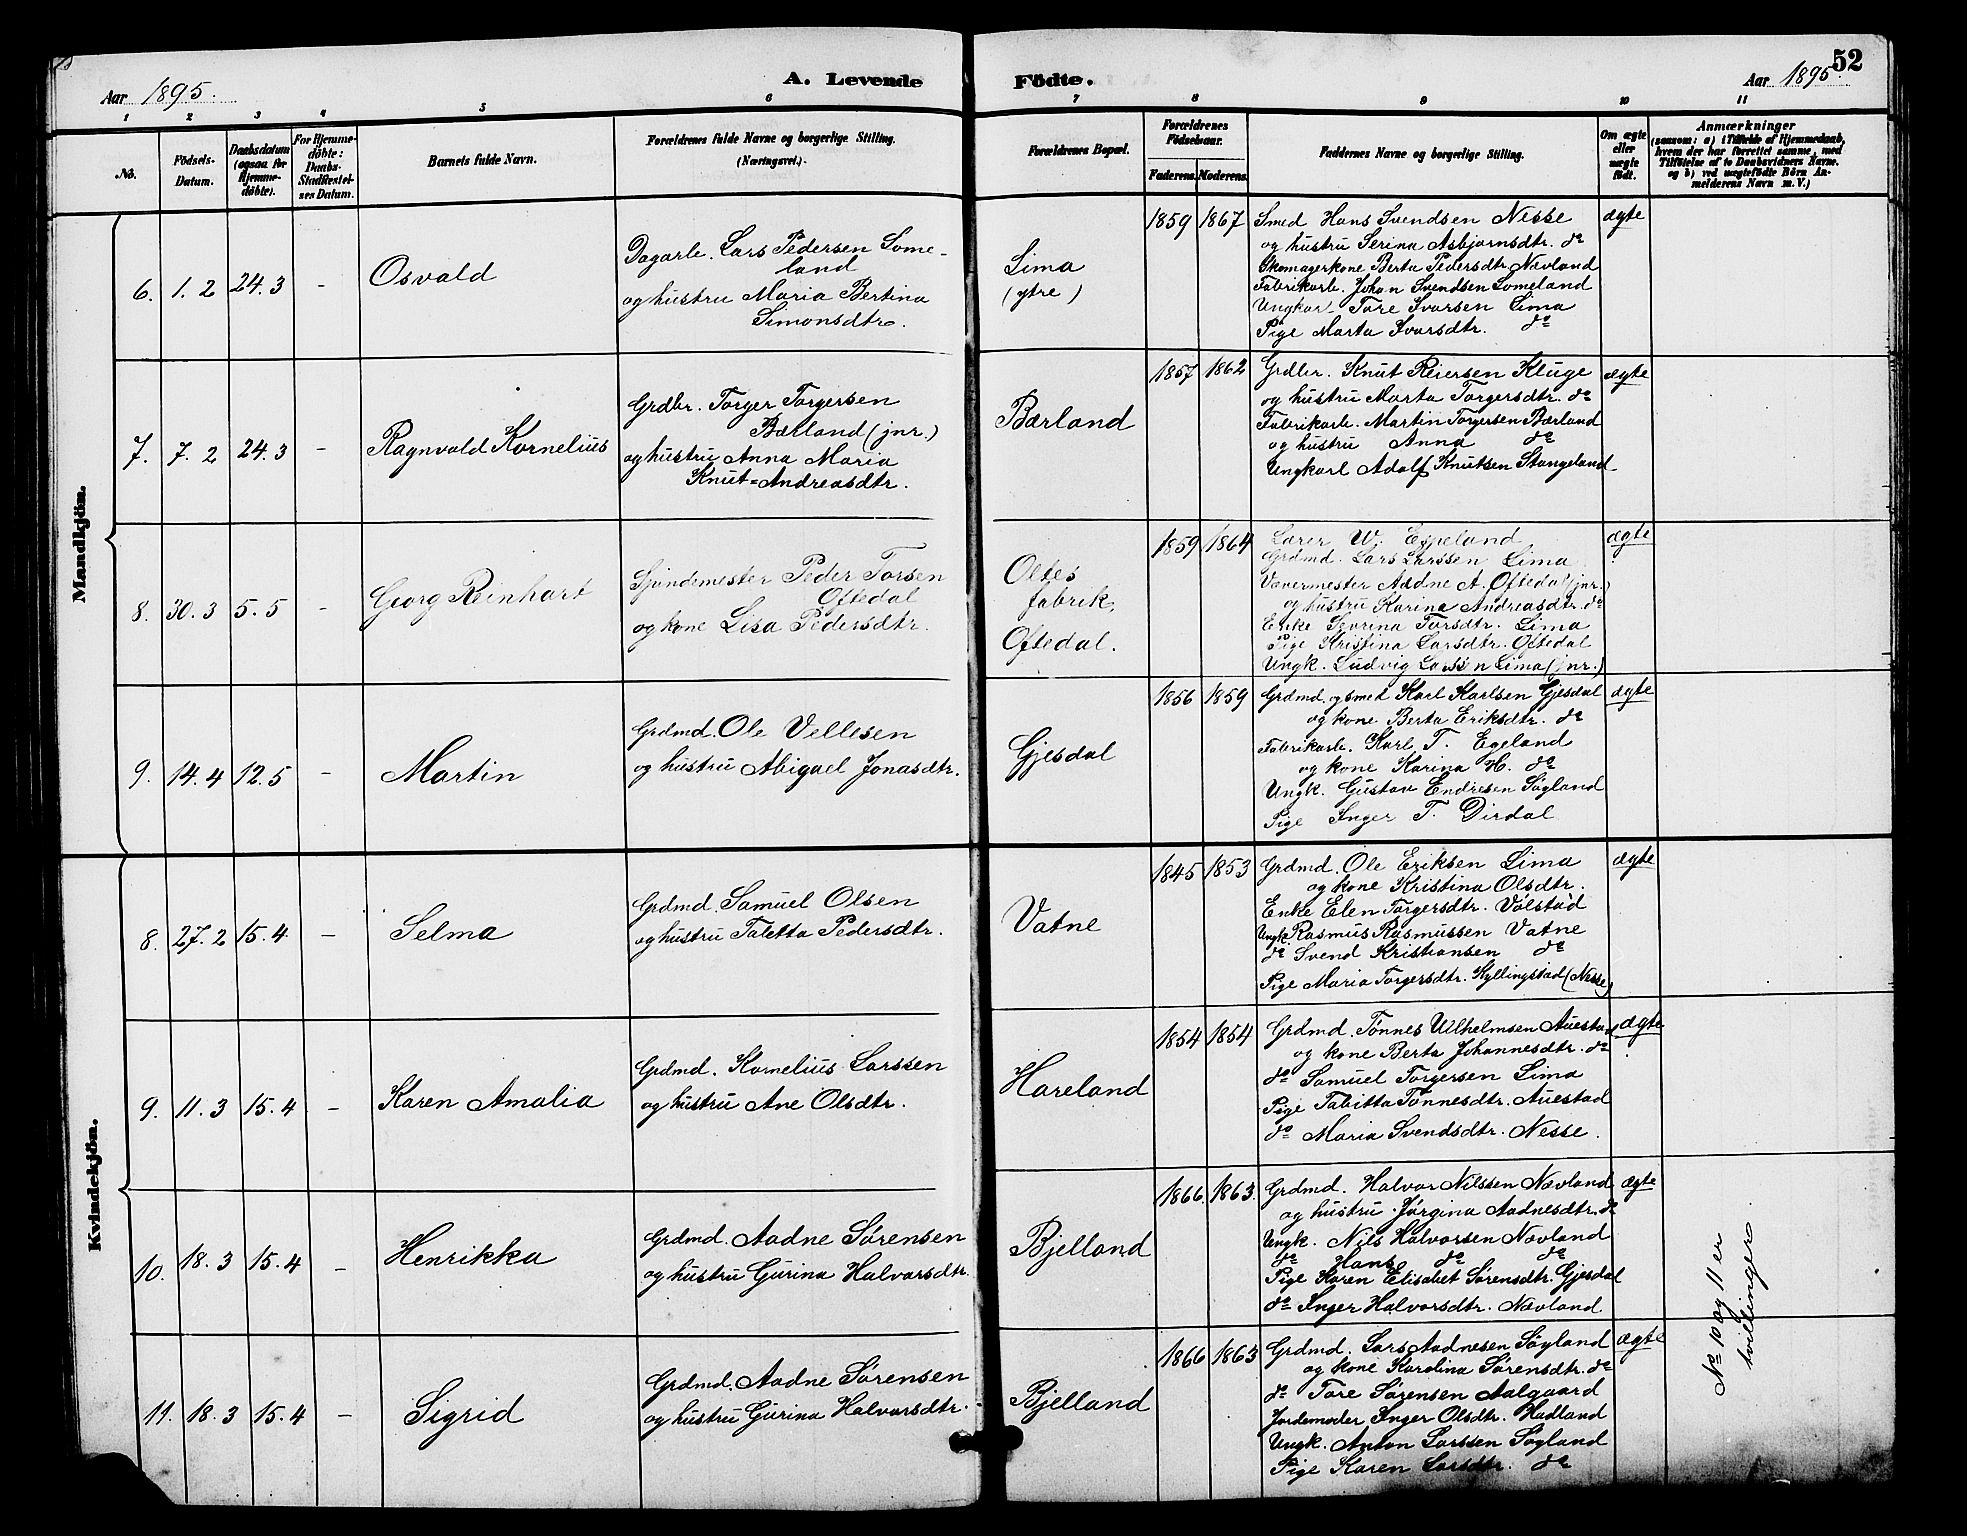 Aar 1895.
A. Levende
Födte.
Aar 1895.
52
1
2
3
4
5
6
7
8
9
10
11
No.
Födsels-
Datum.
Daabsdatum
(ogsaa for
Hjemme-
döbte).
For Hjemme-
döbte:
Daabs
Stadfæstel-
ses Datum.
Barnets fulde Navn.
Forældrenes fulde Navne og borgerlige Stilling.
(Næringsvei.)
Forældrenes Bopæl.
Forældrenes
Födselsaar.
Faderens.
Moderens.
Faddernes Navne og borgerlige Stilling.
Om ægte
eller
uægte
født.
Anmærkninger
(saasom: a) i Tilfælde af Hjemmedaab,
hvem der har forrettet samme, med
Tilföielse af to Daabsvidners Navne.
og b) ved uægtefödte Börn An-
melderens Navn m. V.)
Mandkjön.
6.
1. 2
24. 3
-
Osvald
Dagarb. Lars Pedersen Lome-
land
og hustru Maria Bertina
Simonsdtr.
Lima
(ytre)
1859
1867
Smed Hans Svendsen Nesse
og hustru Serina Asbjørnsdtr. do
Skomagerkone Berta Pedersdtr. Nævland
Fabrikarb. Johan Svendsen Lomeland
Ungkarl Tore Ivarsen Lima
Pige Marta Ivarsdtr. do
ægte
7.
7. 2
24. 3
-
Ragnvald Kornelius
Grdbr. Torger Torgersen
Bærland (jnr.)
og hustru Anna Maria
Knut-Andreasdtr.
Bærland
1857
1862
Grdbr. Knut Reiersen Kluge
og hustru Marta Torgersdtr. do
Fabrikarb. Martin Torgersen Bærland
og hustru Anna do
Ungkarl Adolf Knutsen Stangeland
ægte
8.
30. 3
5. 5
-
Georg Reinhart
Spindemester Peder Torsen
Oftedal
og kone Lisa Pedersdtr.
Oltes
fabrik,
Oftedal.
1859
1864
Lærer W. Espeland
Grdmd. Lars Larssen Lima
Vævermester Aadne A. Oftedal (jnr.)
og hustru Karina Andreasdtr. do
Enke Sevrina Torsdtr. Lima
Pige Kristina Larsdtr. Oftedal
Ungk. Ludvig Larssen Lima (jnr.)
ægte
9.
14. 4
12. 5
-
Martin
Grdmd. Ole Vellesen
og hustru Abigael Jonasdtr.
Gjesdal
1856
1859
Grdmd. og smed Karl Karlsen Gjesdal
og kone Berta Eriksdtr. do
Fabrikarb. Karl T. Egeland
og kone Karina H. do
Ungk. Gustav Endresen Søyland
Pige Inger T. Dirdal
ægte
Kvindekjön.
8.
27. 2
15. 4
-
Selma
Grdmd. Samuel Olsen
og hustru Taletta Pedersdtr.
Vatne
1845
1853
Grdmd. Ole Eriksen Lima
og kone Kristina Olsdtr.
Enke Elen Torgersdtr. Vølstad
Ungk. Rasmus Rasmussen Vatne
do Svend Kristiansen do
Pige Maria Torgersdtr. Kyllingstad (Nesse)
ægte
9.
11. 3
15. 4
-
Karen Amalia
Grdmd. Kornelius Larssen
og hustru Ane Olsdtr.
Hareland
1854
1854
Grdmd. Tønnes Vilhelmsen Auestad
og kone Berta Johannesdtr. do
do Samuel Torgersen Lima
Pige Tabitta Tønnesdtr. Auestad
do Maria Svendsdtr. Nesse.
ægte
10.
18. 3
15. 4
-
Henrikka
Grdmd. Aadne Sørensen
og hustru Gurina Halvorsdtr.
Bjelland
1866
1863.
Grdmd. Halvor Nilssen Nævland
og hustru Jørgina Aadnesdtr. do
Ungk. Nils Halvorsen Nævland
do Hans do do
Pige Karen Elisabet Sørensdtr. Gjesdal
do Inger Halvorsdtr. Nævland
ægte
No 10 og 11 er
tvillinger.
11.
18. 3
15. 4
-
Sigrid
Grdmd. Aadne Sørensen
og hustru Gurina Halvorsdtr.
Bjelland
1866
1863
Grdmd. Lars Aadnesen Søyland
og kone Karolina Sørensdtr. do
do Tore Sørensen Aalgaard
Jordemoder Inger Olsdtr. Hadland
Ungk. Anton Larssen Søyland
Pige Karen Larsdtr. do
ægte